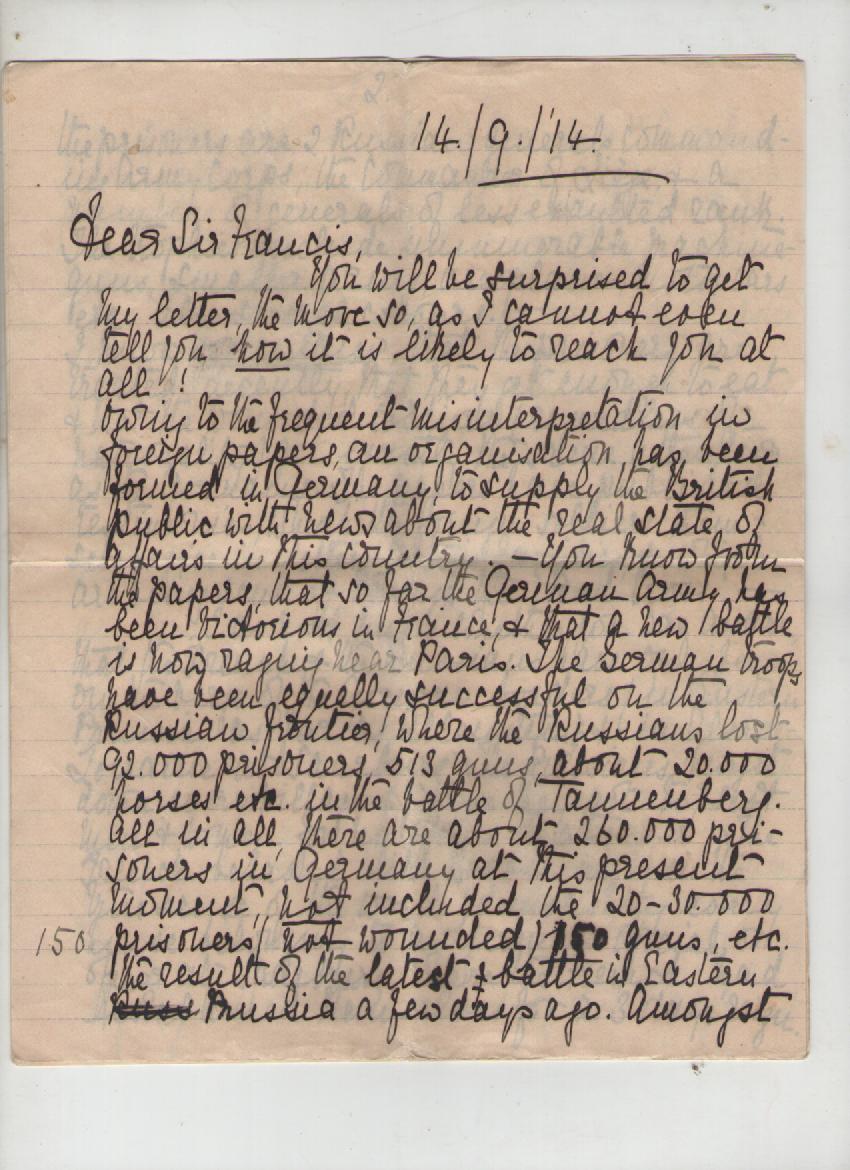 14./9./'14.
Dear Sir Francis,
You will be surprised to get
my letter, the more so, as I cannot even
tell you how it is likely to reach you at
all!
Owing to the frequent misinterpretation in
foreign papers, an organisation has been
formed in Germany, to supply the British
public with news about the real state of
affairs in this country. – You know from
the papers, that so far the German Army has
been victorious in France, & that a new battle
is now raging near Paris. The German troops
have been equally successful on the
Russian frontier, where the Russians lost
92.000 prisoners, 513 guns, about 20.000
horses etc. in the battle of Tannenberg.
All in all, there are about 260.000 pri-
soners in Germany at this present
moment, not included the 20-30.000
150 prisoners (not wounded) 150 guns, etc.
the result of the latest battle in Eastern
Russ Prussia a few days ago. Amongst